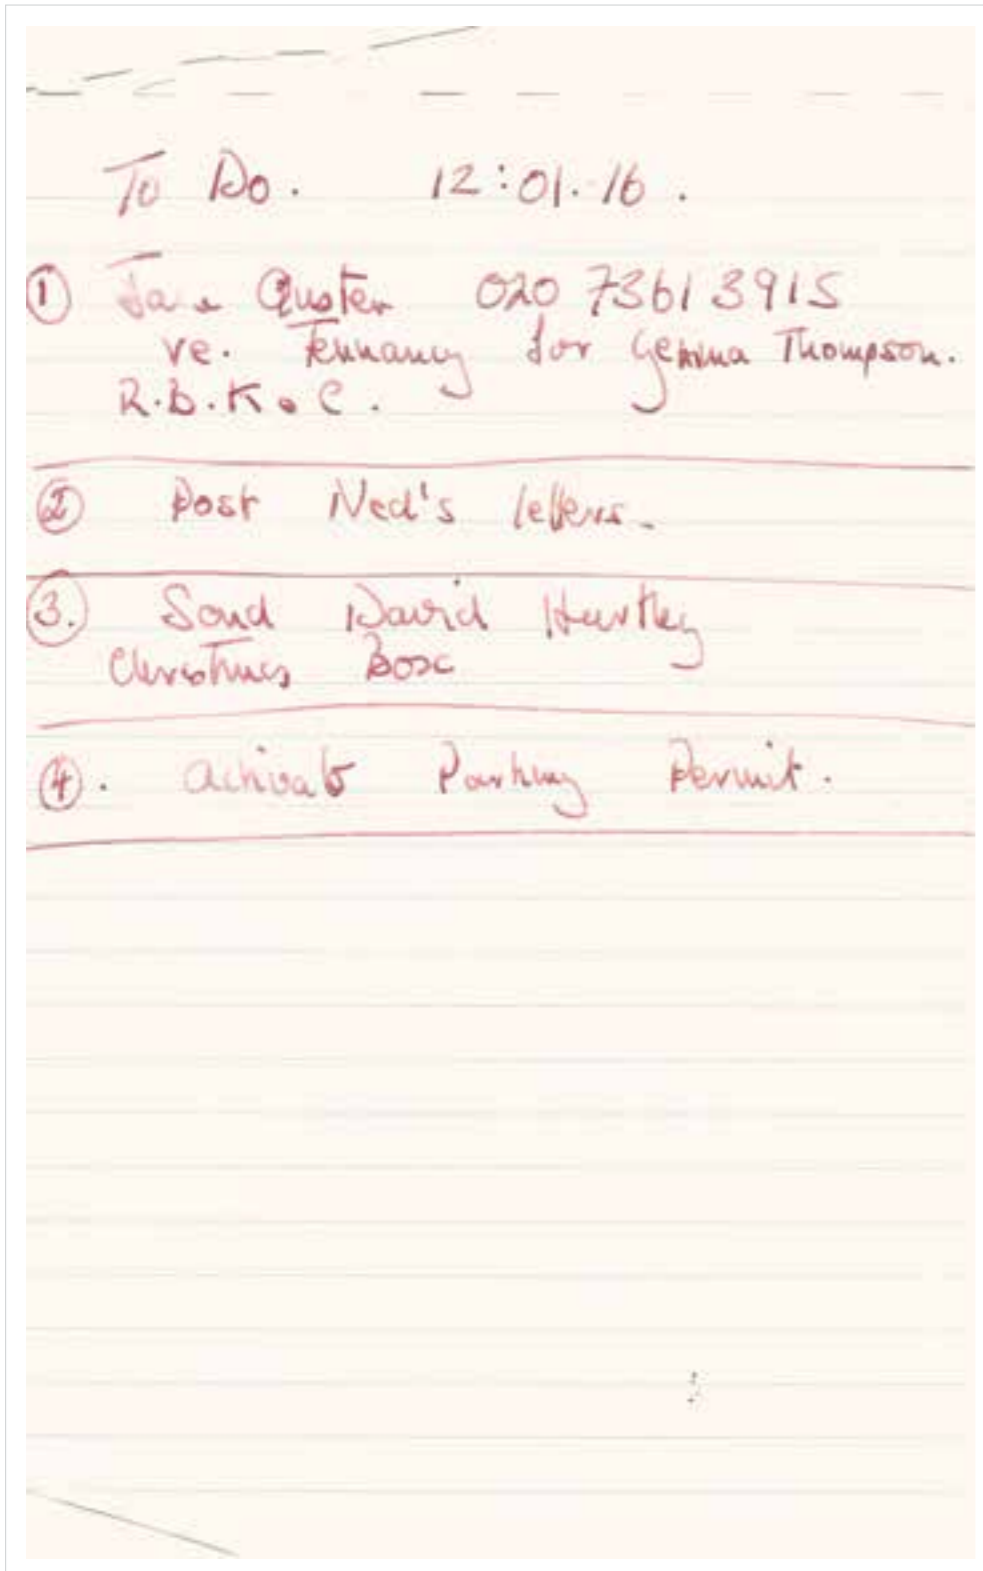 To Do. 12:01.16.
① 020 7361 3915
re. Tennancy for Gemma Thompson.
R.B.K & C.
② Post Ned's letters.
③. Send David Hartley
Christmas Box
④. Activate Parking Permit.